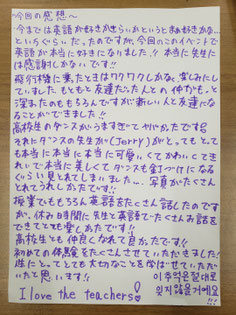 今回の感想〜
今までは英語が好きかきらいかというとまあ好きかな…
というぐらいだったのですが、今回のこのイベントで
英語が本当に好きになりました!!本当に先生に
は感謝しかないです!!
飛行機に乗ったときはワクワクしかなく、楽しみにし
ていました。もともと友達だった人との仲がもっと
深まったのももちろんですが新しい人と友達になる
ことができました!
高校生のダンスがうますぎてヤバかったです。
それにダンスの先生が(Jerry)がとってもとって
も本当に本当に可愛いくてかわいくてき
れいで本当に美しくてダンスも釘づけになる
ぐらい見とれてしまいました…。写真がたくさん
とれてうれしかたです!!
授業でももちろん英語をたくさん話したのです
が、休み時間に先生と英語でたくさんお話を
できてとても楽しかたです!!
高校生とも仲良くなれて良かたです!!
初めての体験をたくさんさせていただきました!
生にとってとても大切なことを学ばせていただい
たと思います!! 이 추억은 절대로
I love the teachers! 잊지 않을거예요!!!